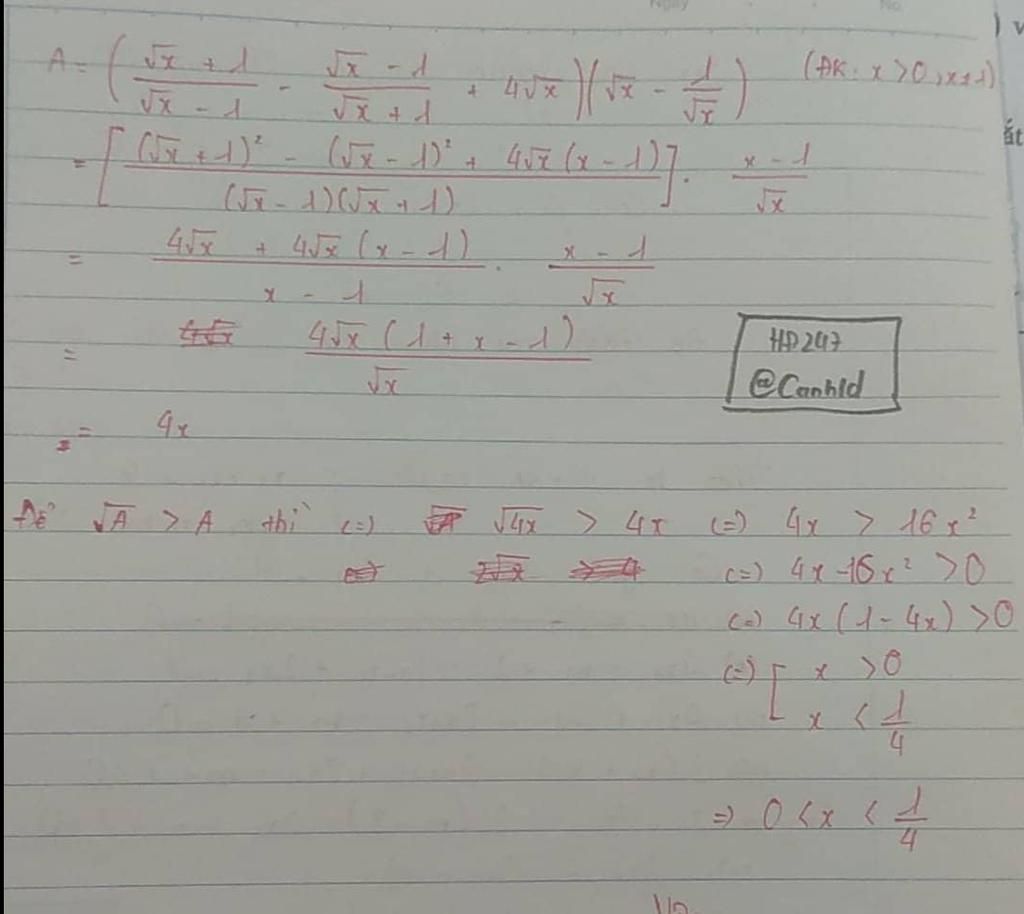 Ngày No.
A = ( (√x + 1)/(√x - 1) - (√x - 1)/(√x + 1) + 4√x )( √x - 1/√x ) (ĐK: x > 0, x ≠ 1)
= [ ((√x + 1)² - (√x - 1)² + 4√x (x - 1)) / ((√x - 1)(√x + 1)) ] . (x - 1)/√x
= (4√x + 4√x (x - 1))/(x - 1) . (x - 1)/√x
= 4√x (1 + x - 1)/√x
HD247
@Canhld
= 4x
Để √A > A thì (=) √4x > 4x (=) 4x > 16x²
(=) 4x - 16x² > 0
(=) 4x (1 - 4x) > 0
(=) [ x > 0
x < 1/4
=) 0 < x < 1/4